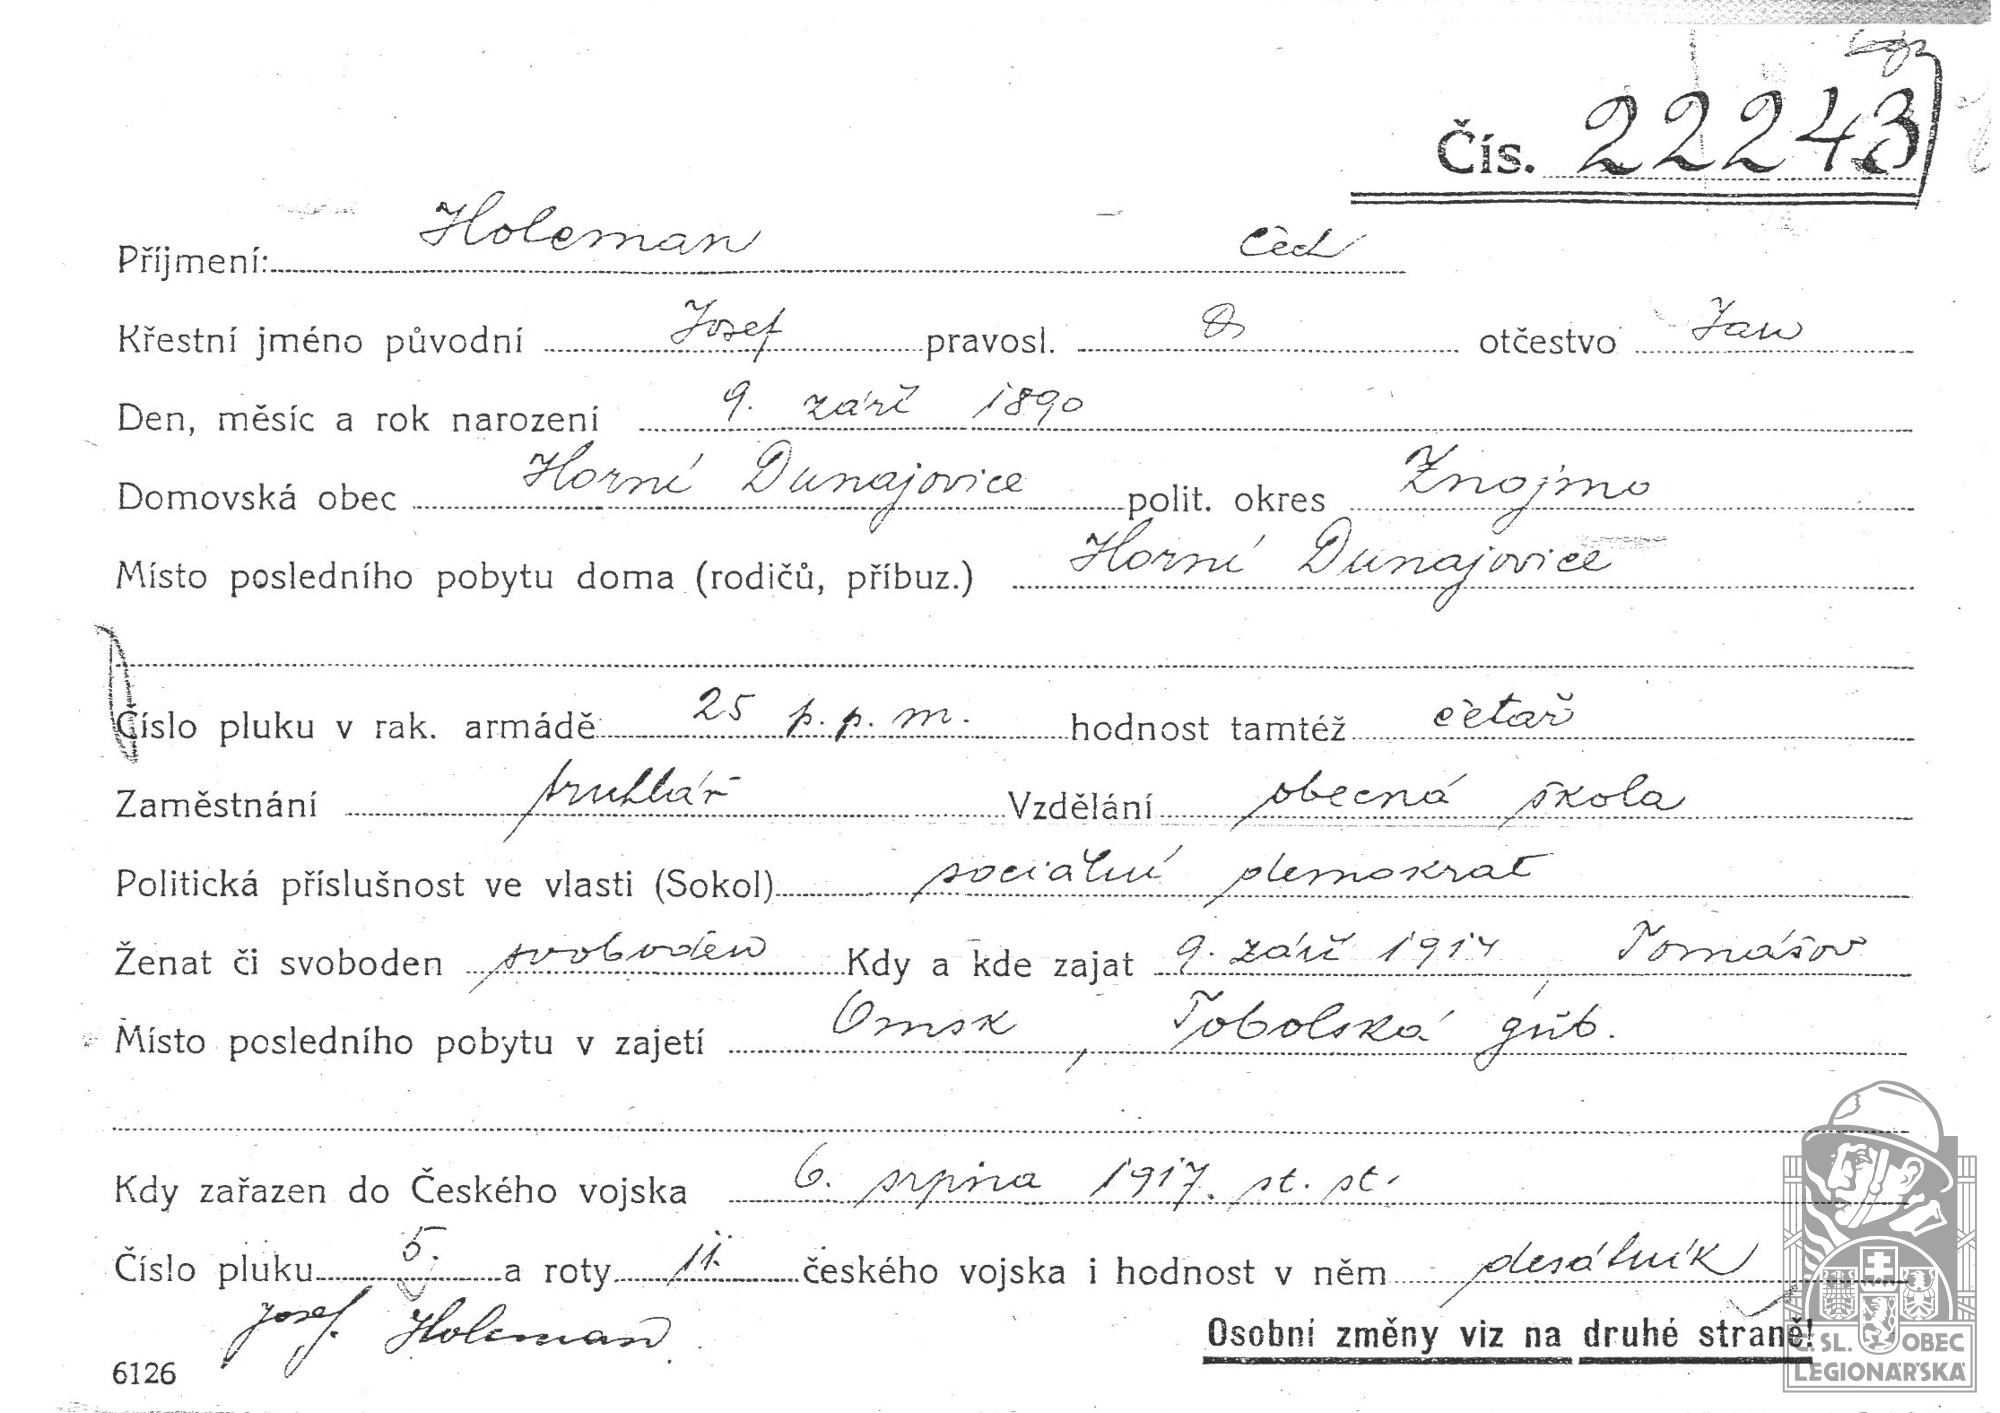 Čís. 22243
Příjmení: Holeman Čech
Křestní jméno původní Josef pravosl. otčestvo Jan
Den, měsíc a rok narození 9. září 1890
Domovská obec Horní Dunajovice polit. okres Znojmo
Místo posledního pobytu doma (rodičů, příbuz.) Horní Dunajovice
Číslo pluku v rak. armádě 25 p. p. m. hodnost tamtéž četař
Zaměstnání truhlář Vzdělání obecná škola
Politická příslušnost ve vlasti (Sokol) sociální demokrat
Ženat či svoboden svoboden Kdy a kde zajat 9. září 1914, Tomášov
Místo posledního pobytu v zajetí Omsk, Tobolská gub.
Kdy zařazen do Českého vojska 6. srpna 1917. st. st.
Číslo pluku 5. a roty 11. českého vojska i hodnost v něm desátník
Josef Holeman
Osobní změny viz na druhé straně!
6126
Č. SL. OBEC
LEGIONÁŘSKÁ